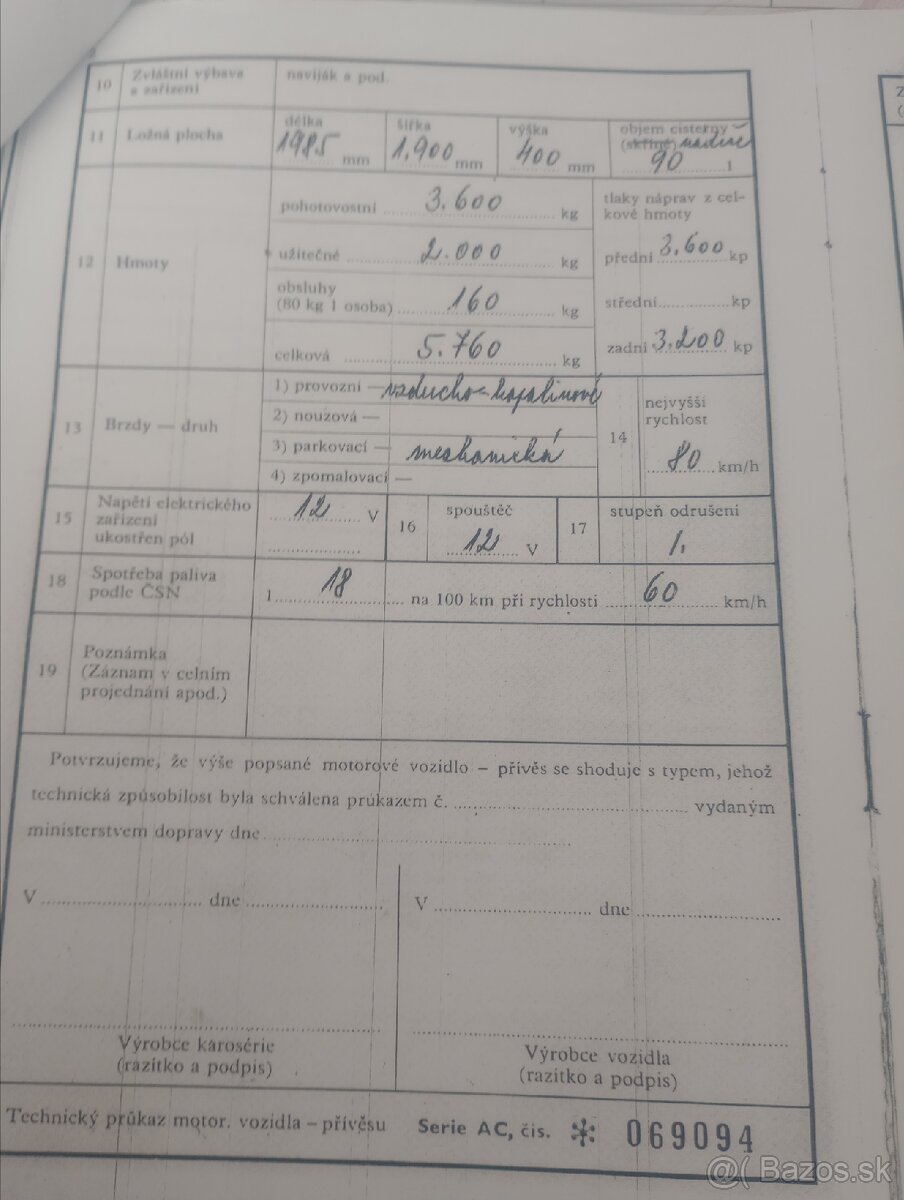 10 Zvláštní výbava a zařízení
naviják a pod.
11 Ložná plocha
délka 1985 mm
šířka 1.900 mm
výška 400 mm
objem cisterny
(skříně) nádrže
90 l
12 Hmoty
pohotovostní 3.600 kg
užitečné 2.000 kg
obsluhy
(80 kg 1 osoba) 160 kg
celková 5.760 kg
tlaky náprav z cel-
kové hmoty
přední 3.600 kp
střední kp
zadní 3.200 kp
13 Brzdy — druh
1) provozní — vzducho-kapalinové
2) nouzová —
3) parkovací — mechanická
4) zpomalovací —
14 nejvyšší
rychlost
80 km/h
15 Napětí elektrického
zařízení
ukostřen pól
12 V
16 spouštěč
12 V
17 stupeň odrušení
1.
18 Spotřeba paliva
podle ČSN
l 18 na 100 km při rychlosti 60 km/h
19 Poznámka
(Záznam v celním
projednání apod.)
Potvrzujeme, že výše popsané motorové vozidlo – přívěs se shoduje s typem, jehož
technická způsobilost byla schválena průkazem č. vydaným
ministerstvem dopravy dne
V dne
V dne
Výrobce karosérie
(razítko a podpis)
Výrobce vozidla
(razítko a podpis)
Technický průkaz motor. vozidla – přívěsu Serie AC, čís. * 069094
@( Bazos.sk